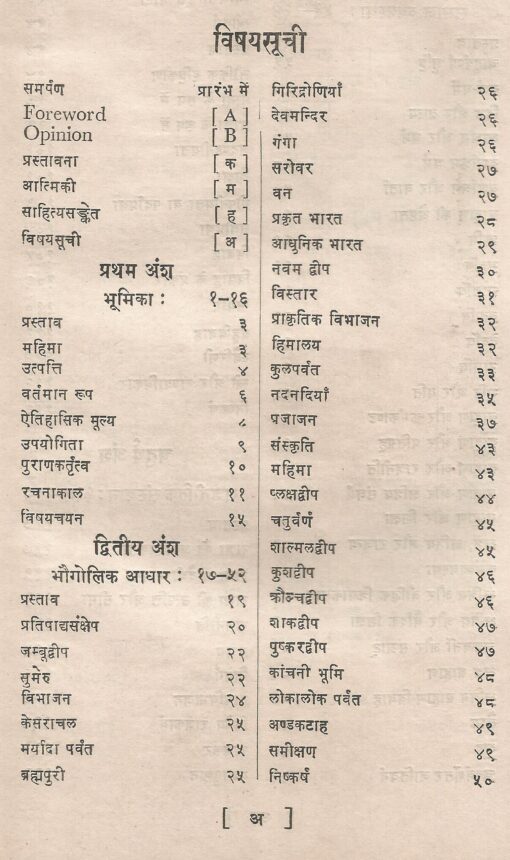 विषयसूची
समर्पण प्रारंभ में
Foreword [ A ]
Opinion [ B ]
प्रस्तावता [ क ]
आत्मिकी [ म ]
साहित्यसङ्केत [ ह ]
विषयसूची [ अ ]
प्रथम अंश
भूमिका : १–१६
प्रस्ताव ३
महिमा ३
उत्पत्ति ४
वर्तमान रूप ६
ऐतिहासिक मूल्य ८
उपयोगिता ९
पुराणकर्तृत्व १०
रचनाकाल ११
विषयचयन १५
द्वितीय अंश
भौगोलिक आधार : १७–५२
प्रस्ताव १९
प्रतिपाद्यसंक्षेप २०
जम्बूद्वीप २२
सुमेरु २२
विभाजन २४
केसराचल २५
मर्यादा पर्वत २५
ब्रह्मपुरी २५
गिरिद्रोणियाँ २६
देवमन्दिर २६
गंगा २६
सरोवर २७
वन २७
प्रकृत भारत २८
आधुनिक भारत २९
नवम द्वीप ३०
विस्तार ३१
प्राकृतिक विभाजन ३२
हिमालय ३२
कुलपर्वत ३३
नदनदियाँ ३५
प्रजाजन ३७
संस्कृति ४३
महिमा ४३
प्लक्षद्वीप ४४
चतुर्वर्ण ४५
शाल्मलद्वीप ४५
कुशद्वीप ४६
क्रौञ्चद्वीप ४६
शाकद्वीप ४७
पुष्करद्वीप ४७
कांचनी भूमि ४८
लोकालोक पर्वत ४८
अण्डकटाह ४९
समीक्षण ४९
निष्कर्ष ५०
[ अ ]